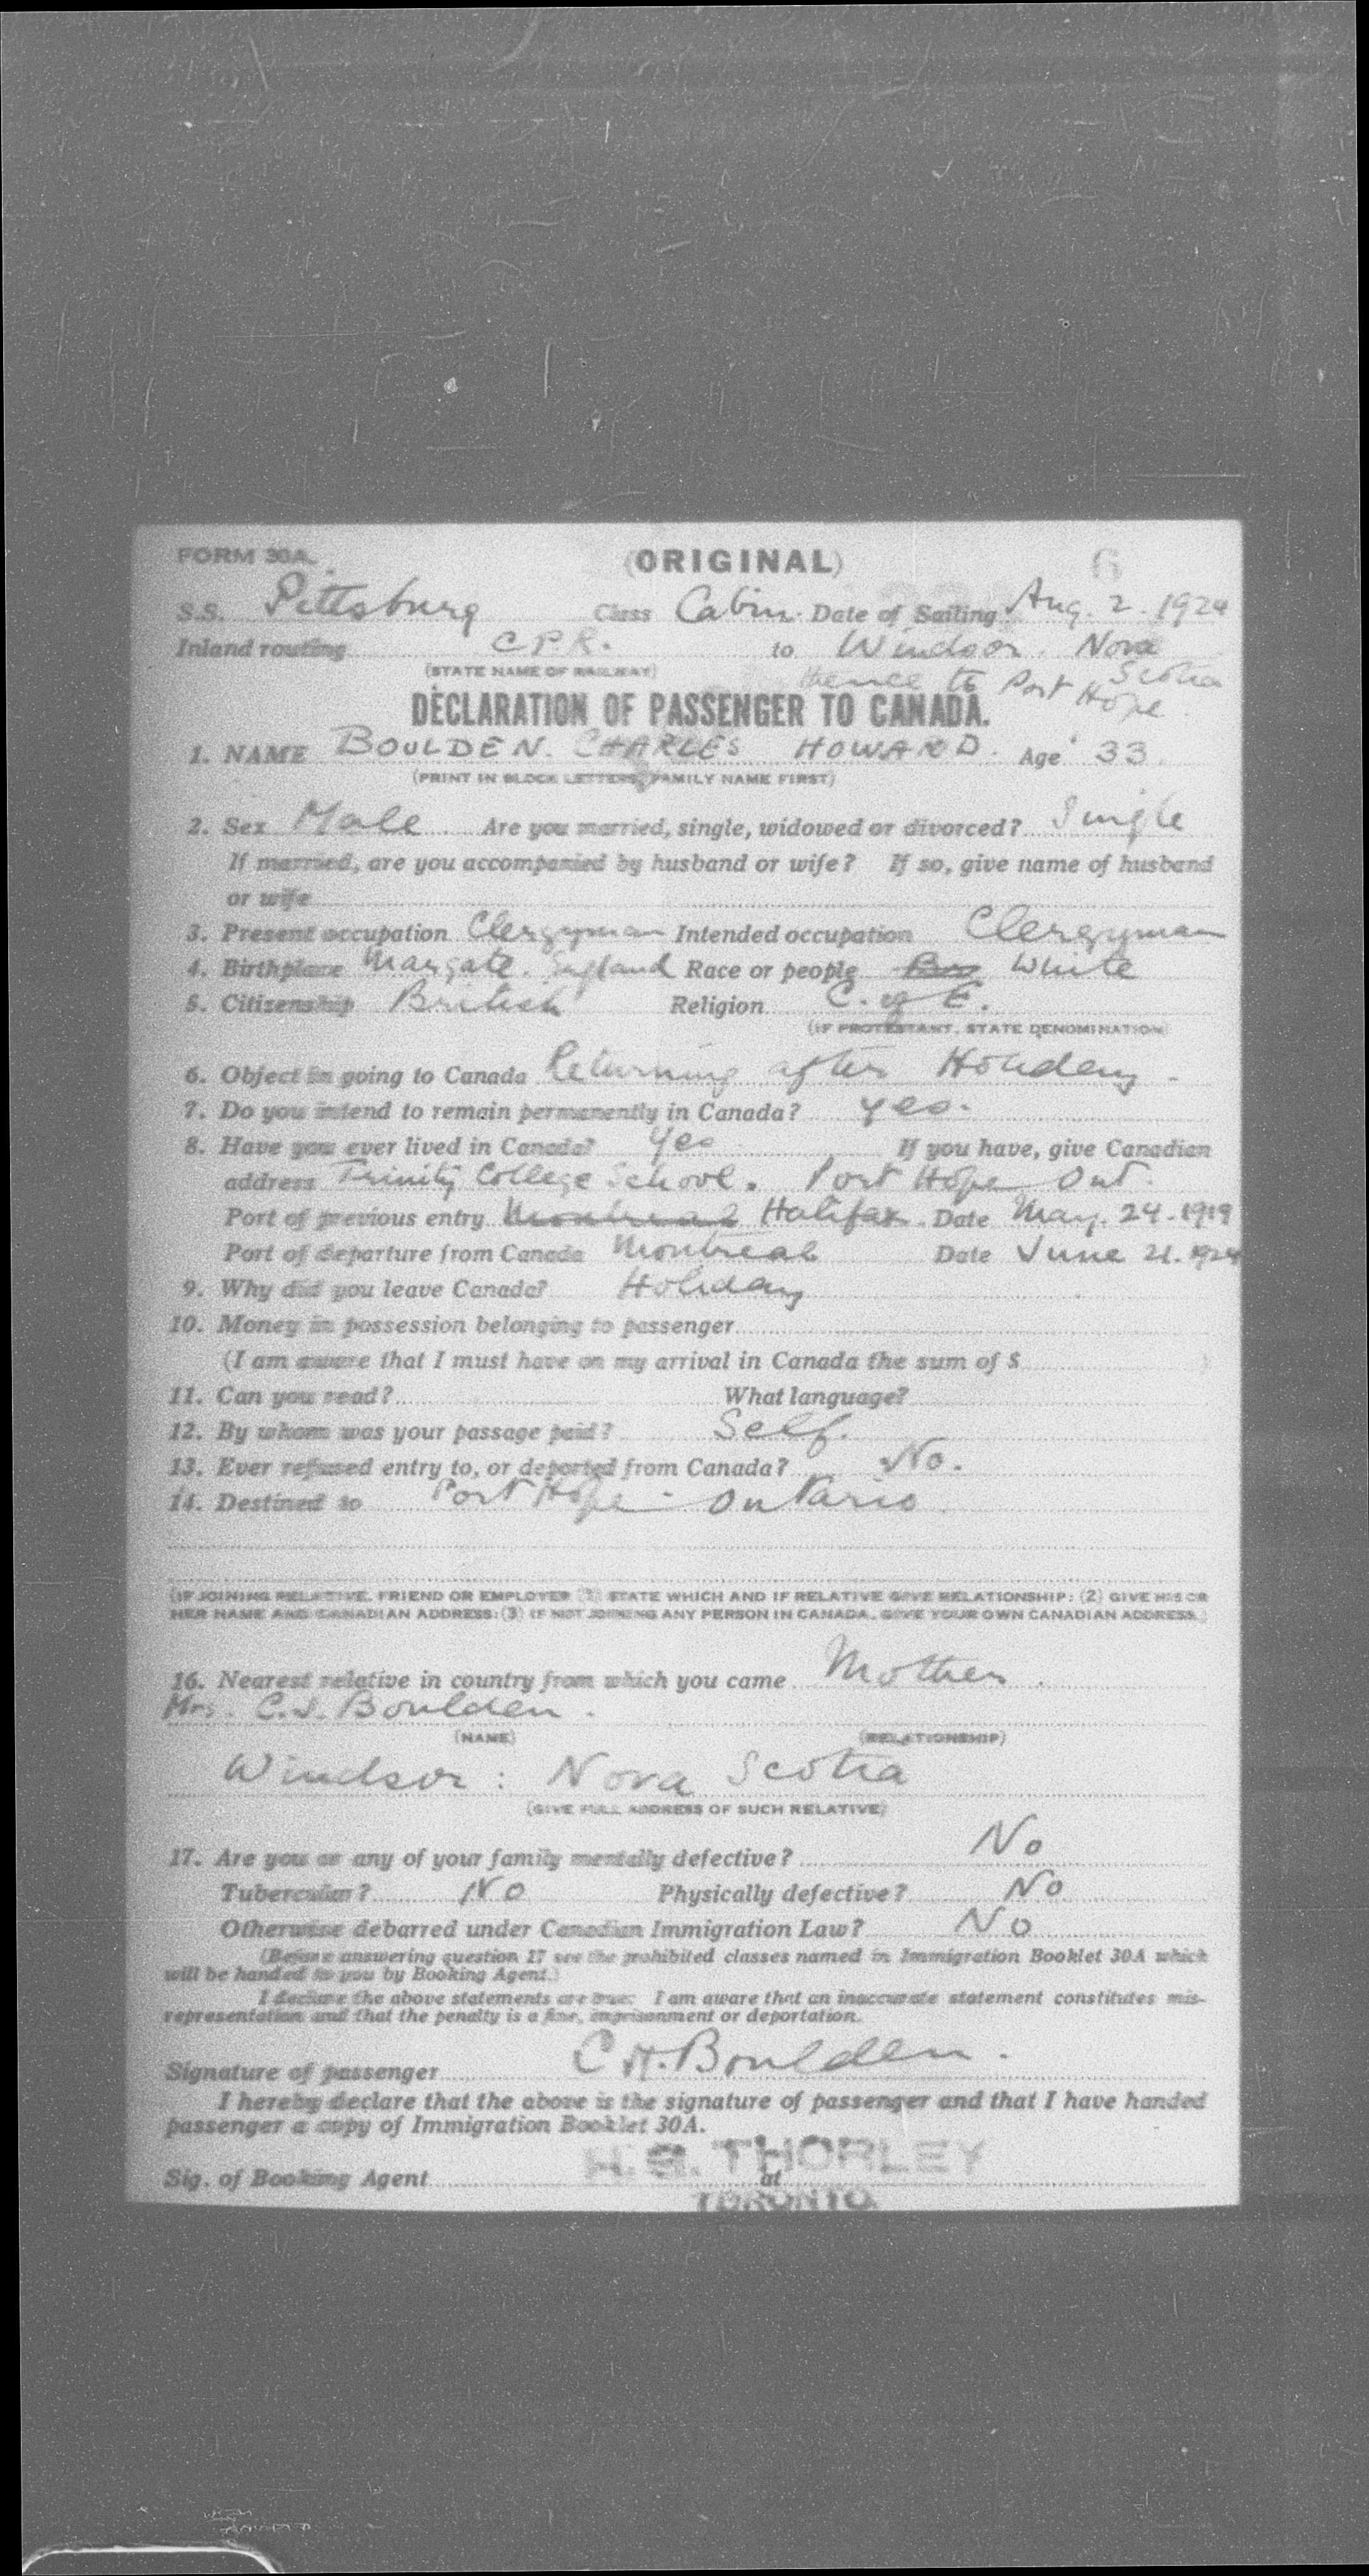 FORM 30A.
(ORIGINAL)
6
S.S. Pittsburg Class Cabin. Date of Sailing Aug. 2. 1924
Inland routing C P R. to Windsor. Nova Scotia
(STATE NAME OF RAILWAY)
thence to Port Hope
DECLARATION OF PASSENGER TO CANADA.
1. NAME BOULDEN. CHARLES HOWARD. Age 33.
(PRINT IN BLOCK LETTERS, FAMILY NAME FIRST)
2. Sex Male Are you married, single, widowed or divorced? Single
If married, are you accompanied by husband or wife? If so, give name of husband
or wife
3. Present occupation Clergyman Intended occupation Clergyman
4. Birthplace Margate. England Race or people White
5. Citizenship British Religion C. of E.
(IF PROTESTANT, STATE DENOMINATION)
6. Object in going to Canada Returning after Holiday.
7. Do you intend to remain permanently in Canada? yes.
8. Have you ever lived in Canada? Yes If you have, give Canadian
address Trinity College School. Port Hope Ont.
Port of previous entry Montreal Halifax. Date May. 24. 1919
Port of departure from Canada Montreal Date June 21. 1924
9. Why did you leave Canada? Holiday
10. Money in possession belonging to passenger
(I am aware that I must have on my arrival in Canada the sum of $ )
11. Can you read? What language?
12. By whom was your passage paid? Self.
13. Ever refused entry to, or deported from Canada? No.
14. Destined to Port Hope - Ontario
(IF JOINING RELATIVE, FRIEND OR EMPLOYER (1) STATE WHICH AND IF RELATIVE GIVE RELATIONSHIP: (2) GIVE HIS OR
HER NAME AND CANADIAN ADDRESS: (3) IF NOT JOINING ANY PERSON IN CANADA, GIVE YOUR OWN CANADIAN ADDRESS.)
16. Nearest relative in country from which you came Mother
Mrs. C.J. Boulden.
(NAME) (RELATIONSHIP)
Windsor: Nova Scotia
(GIVE FULL ADDRESS OF SUCH RELATIVE)
17. Are you or any of your family mentally defective? No
Tubercular? No Physically defective? No
Otherwise debarred under Canadian Immigration Law? No
(Before answering question 17 see the prohibited classes named in Immigration Booklet 30A which
will be handed to you by Booking Agent.)
I declare the above statements are true: I am aware that an inaccurate statement constitutes mis-
representation and that the penalty is a fine, imprisonment or deportation.
Signature of passenger C H. Boulden.
I hereby declare that the above is the signature of passenger and that I have handed
passenger a copy of Immigration Booklet 30A.
Sig. of Booking Agent H. G. THORLEY at
TORONTO.